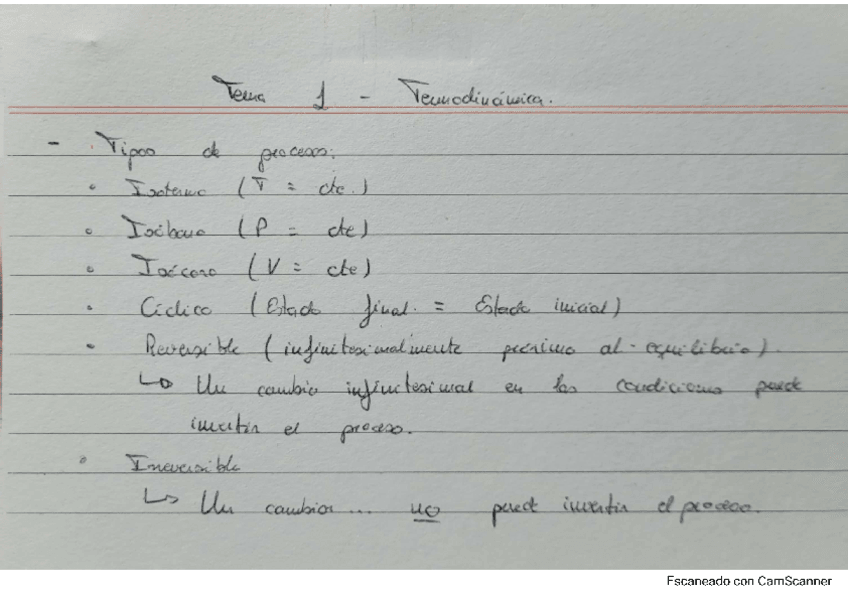 Tema 1 - Termodinámica.
- Tipos de procesos:
• Isotermo (T = cte.)
• Isóbaro (P = cte)
• Isócoro (V = cte)
• Cíclico (Estado final = Estado inicial)
• Reversible (infinitesimalmente próximo al equilibrio).
↳ Un cambio infinitesimal en las condiciones puede
invertir el proceso.
• Irreversible
↳ Un cambio... no puede invertir el proceso.
Escaneado con CamScanner